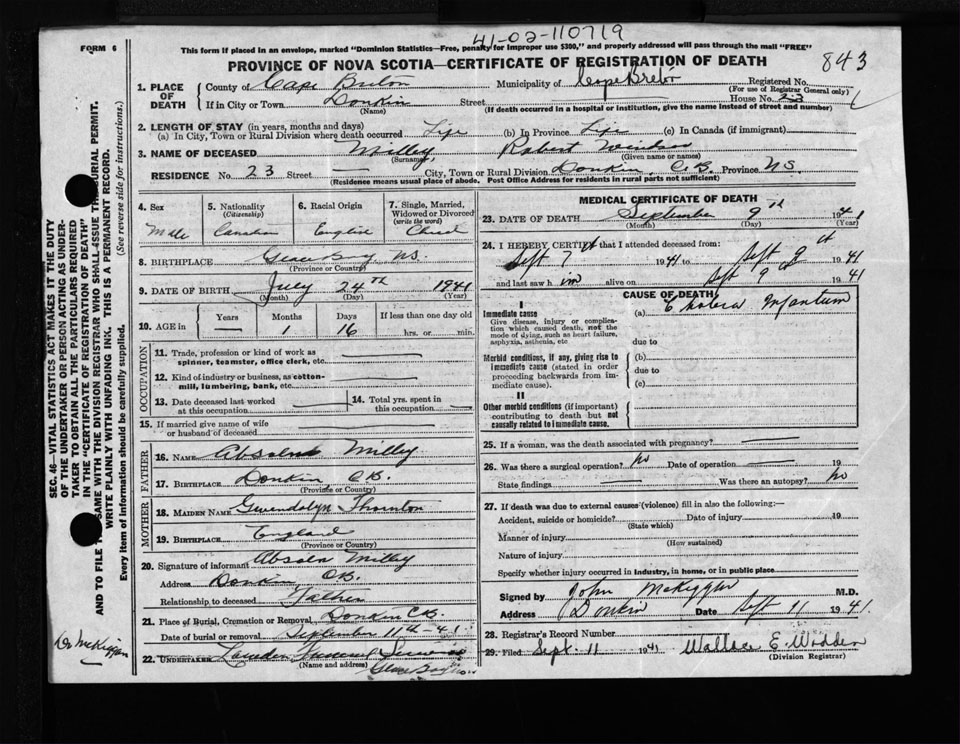 41-02-110719
FORM 6
This form if placed in an envelope, marked "Dominion Statistics—Free, penalty for improper use $300," and properly addressed will pass through the mail "FREE"
PROVINCE OF NOVA SCOTIA—CERTIFICATE OF REGISTRATION OF DEATH
843
1. PLACE OF DEATH
County of Cape Breton Municipality of Cape Breton Registered No.
(For use of Registrar General only)
If in City or Town Donkin Street House No. 23
(Name) (If death occurred in a hospital or institution, give the name instead of street and number)
2. LENGTH OF STAY (in years, months and days)
(a) In City, Town or Rural Division where death occurred Life (b) In Province Life (c) In Canada (if immigrant)
3. NAME OF DECEASED Milley Robert Windsor
(Surname) (Given name or names)
RESIDENCE No. 23 Street — City, Town or Rural Division Donkin, C.B. Province N.S.
(Residence means usual place of abode. Post Office Address for residents in rural parts not sufficient)
4. Sex
Male
5. Nationality
(Citizenship)
Canadian
6. Racial Origin
English
7. Single, Married, Widowed or Divorced
(write the word)
8. BIRTHPLACE Glace Bay N.S.
(Province or Country)
9. DATE OF BIRTH July 24th 1941
(Month) (Day) (Year)
10. AGE in
Years —
Months 1
Days 16
If less than one day old
hrs. or min.
OCCUPATION
11. Trade, profession or kind of work as spinner, teamster, office clerk, etc. —
12. Kind of industry or business, as cotton-mill, lumbering, bank, etc. —
13. Date deceased last worked at this occupation —
14. Total yrs. spent in this occupation —
15. If married give name of wife or husband of deceased —
FATHER
16. Name Milley
17. Birthplace Donkin, C.B.
(Province or Country)
MOTHER
18. Maiden Name Gwendolyn Thornton
19. Birthplace England
(Province or Country)
20. Signature of informant Milley
Address Donkin, C.B.
Relationship to deceased Father
21. Place of Burial, Cremation or Removal Donkin C.B.
Date of burial or removal September 11th-41
22. UNDERTAKER Funeral
(Name and address) Glace Bay
MEDICAL CERTIFICATE OF DEATH
23. DATE OF DEATH September 9th 1941
(Month) (Day) (Year)
24. I HEREBY CERTIFY that I attended deceased from:
Sept 7 1941 to Sept 9 1941
and last saw him alive on Sept 9 1941
CAUSE OF DEATH
I
Immediate cause
Give disease, injury or complication which caused death, not the mode of dying, such as heart failure, asphyxia, asthenia, etc
(a) Cholera Infantum
due to
Morbid conditions, if any, giving rise to immediate cause (stated in order proceeding backwards from immediate cause).
(b)
due to
(c)
II
Other morbid conditions (if important) contributing to death but not causally related to immediate cause.
25. If a woman, was the death associated with pregnancy? —
26. Was there a surgical operation? no Date of operation — 19
State findings — Was there an autopsy? no
27. If death was due to external causes (violence) fill in also the following:
Accident, suicide or homicide? Date of injury 19
(State which)
Manner of injury
(How sustained)
Nature of injury
Specify whether injury occurred in industry, in home, or in public place
Signed by John McKiggan M.D.
Address Donkin Date Sept 11 1941.
28. Registrar's Record Number
29. Filed Sept. 11 1941
(Division Registrar)
SEC. 46—VITAL STATISTICS ACT MAKES IT THE DUTY
OF THE UNDERTAKER OR PERSON ACTING AS UNDER-
TAKER TO OBTAIN ALL THE PARTICULARS REQUIRED
IN THE "CERTIFICATE OF REGISTRATION OF DEATH"
AND TO FILE SAME WITH THE DIVISION REGISTRAR WHO SHALL ISSUE BURIAL PERMIT.
WRITE PLAINLY WITH UNFADING INK. THIS IS A PERMANENT RECORD.
Every item of information should be carefully supplied. (See reverse side for instructions.)
Dr McKiggan